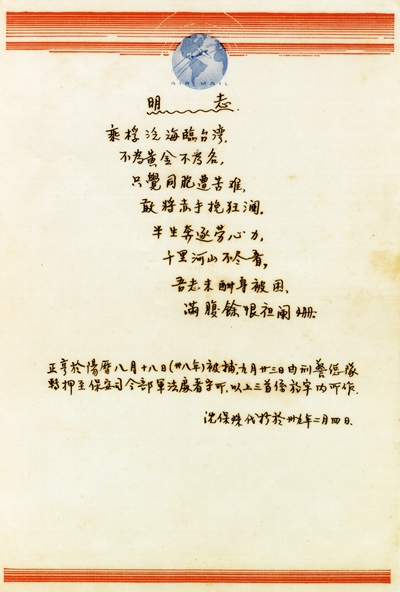 AIR MAIL
明 志
乘桴泛海臨台灣,
不為黃金不為名,
只覺同胞遭苦难,
敢將赤手挽狂瀾,
半生奔逐勞心力,
十里河山不尽看,
吾志未酬身被困,
滿腹餘恨袒闌珊.
正亨於陽曆八月十八日(卅八年)被捕九月廿三日由刑警總隊
轉押至保安司令部軍法處看守所.以上三首係於牢內所作.
沈保珠代抄於卅九年二月四日.